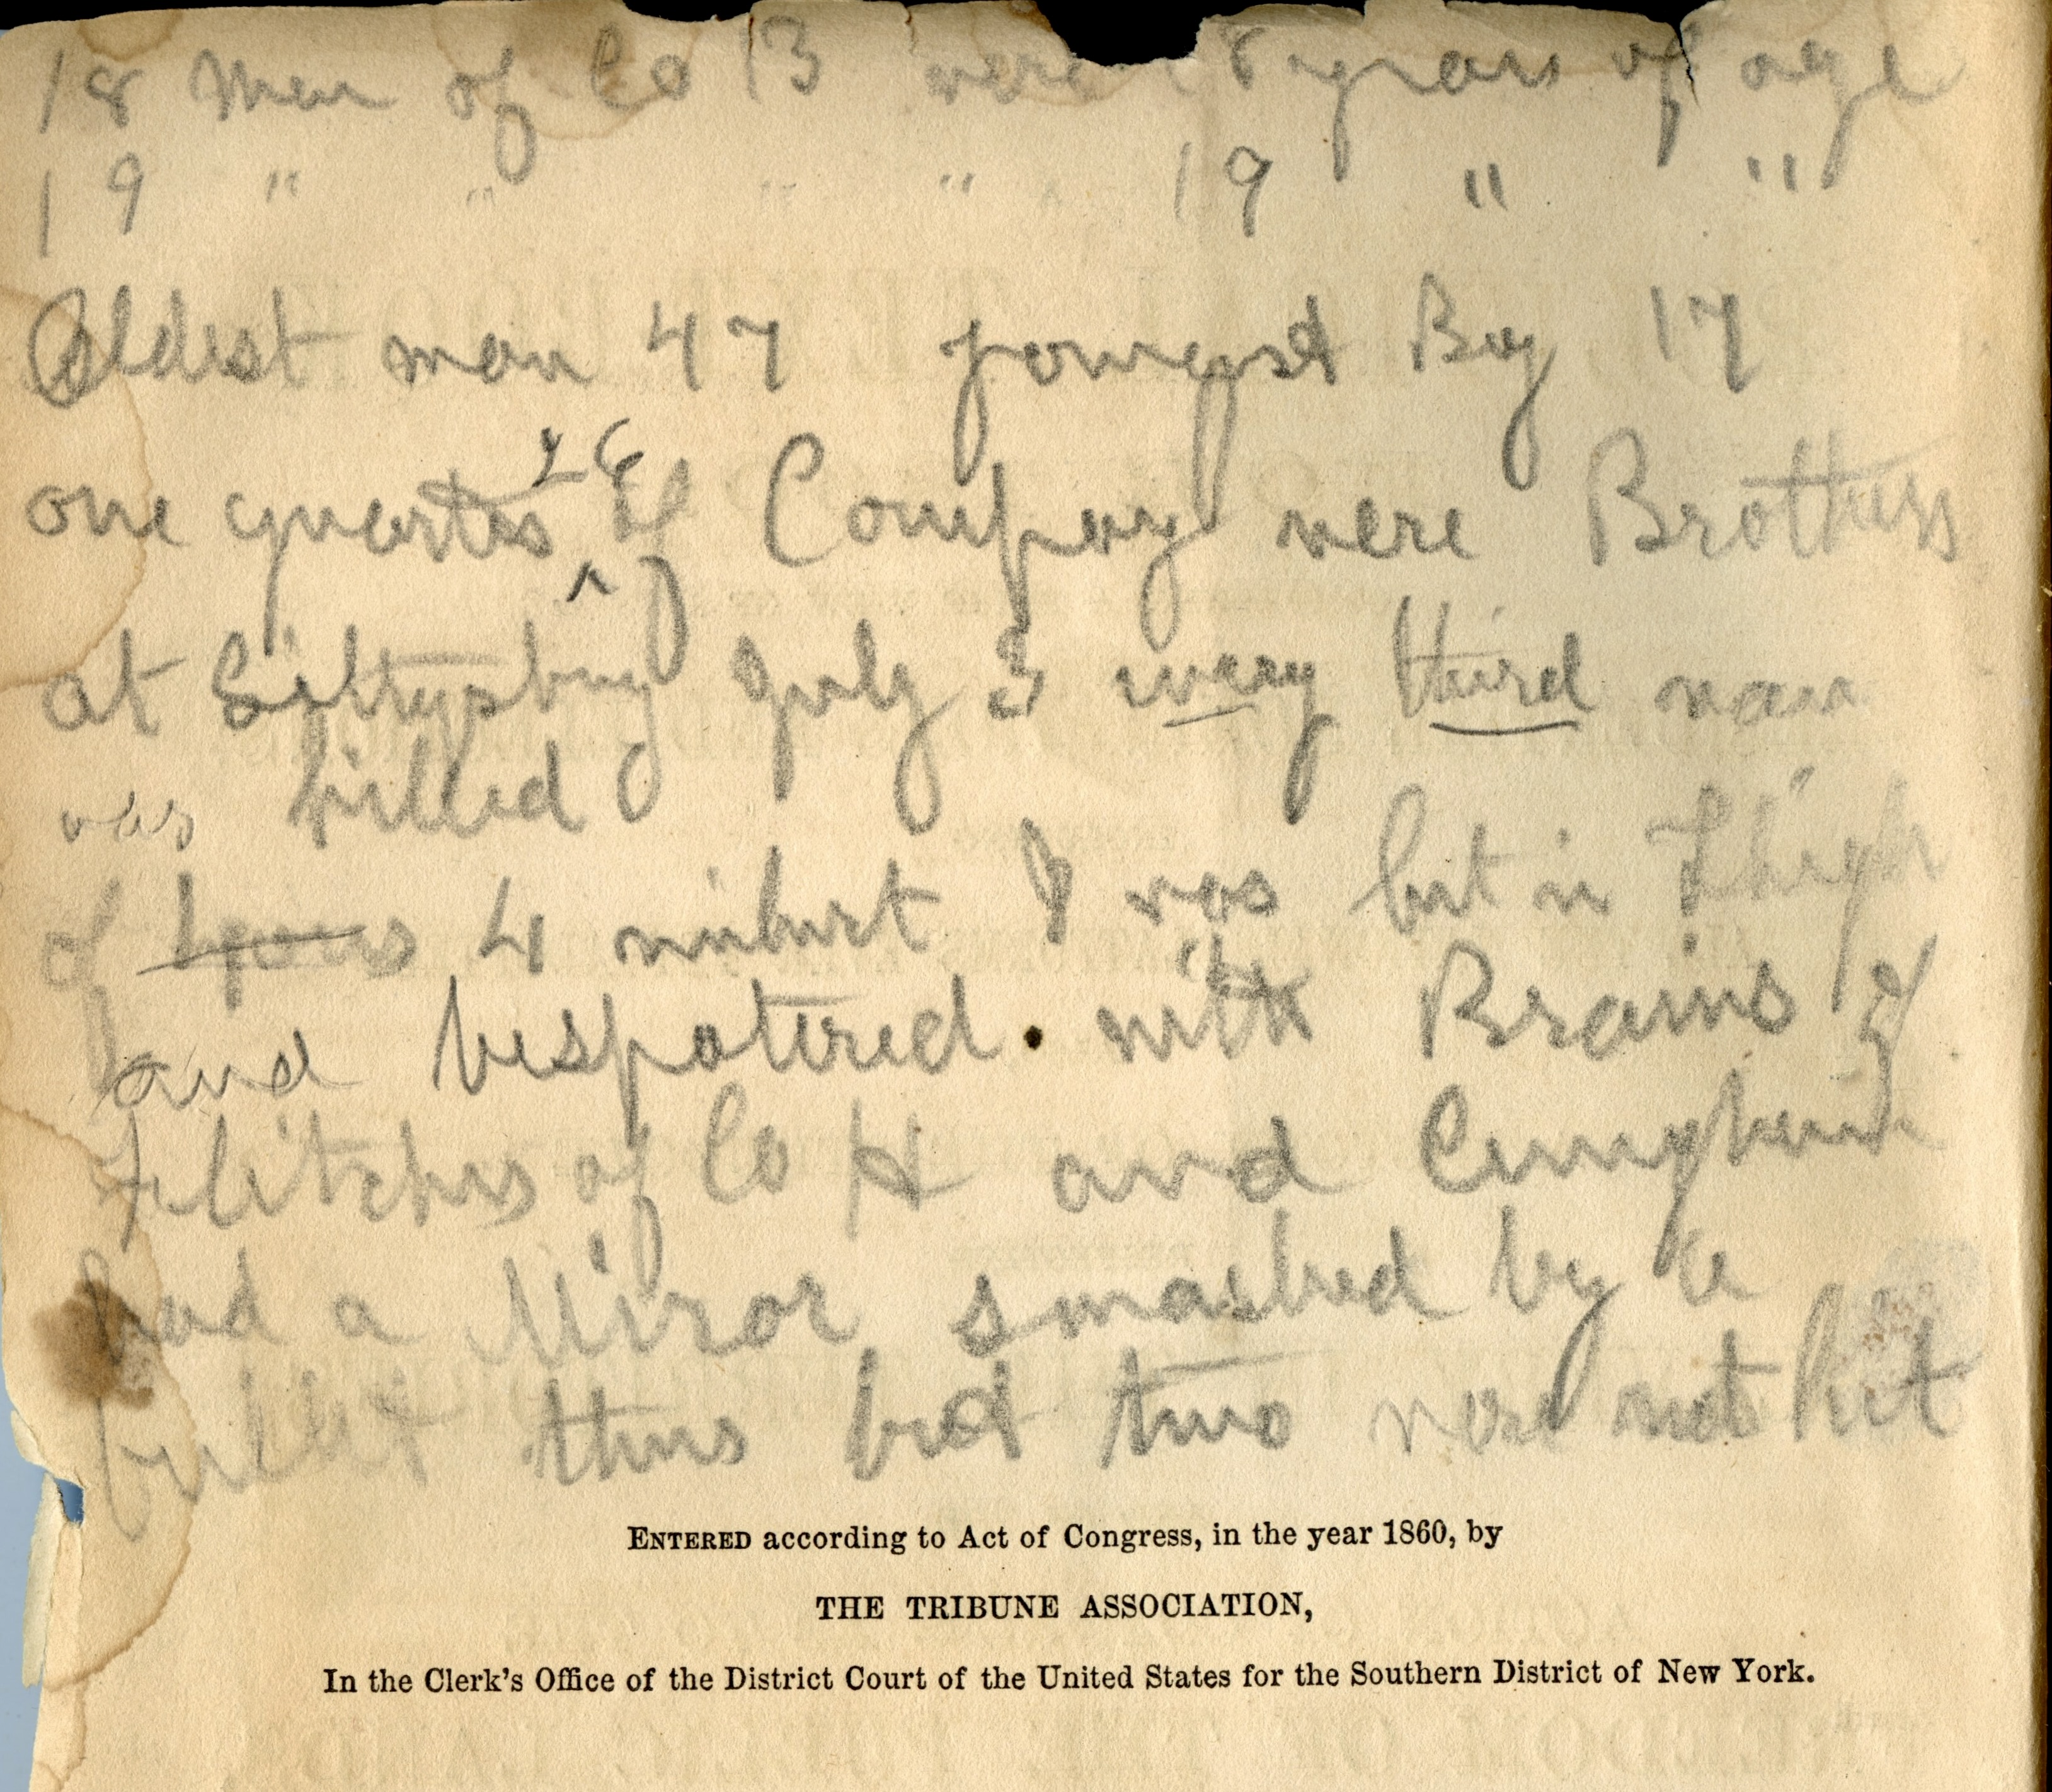 18 Men of Co B were 18 years of age
19 " " " " 19 " "
Oldest man 47 youngest Boy 17
one quarter of Company were Brothers
at Gettysburg July 3 every third man
was killed
of 4 I was hit in Thigh
and bespattered with Brains of
of Co H and
had a Miror smashed by a
bullet thus but two were not hit
ENTERED according to Act of Congress, in the year 1860, by
THE TRIBUNE ASSOCIATION,
In the Clerk's Office of the District Court of the United States for the Southern District of New York.